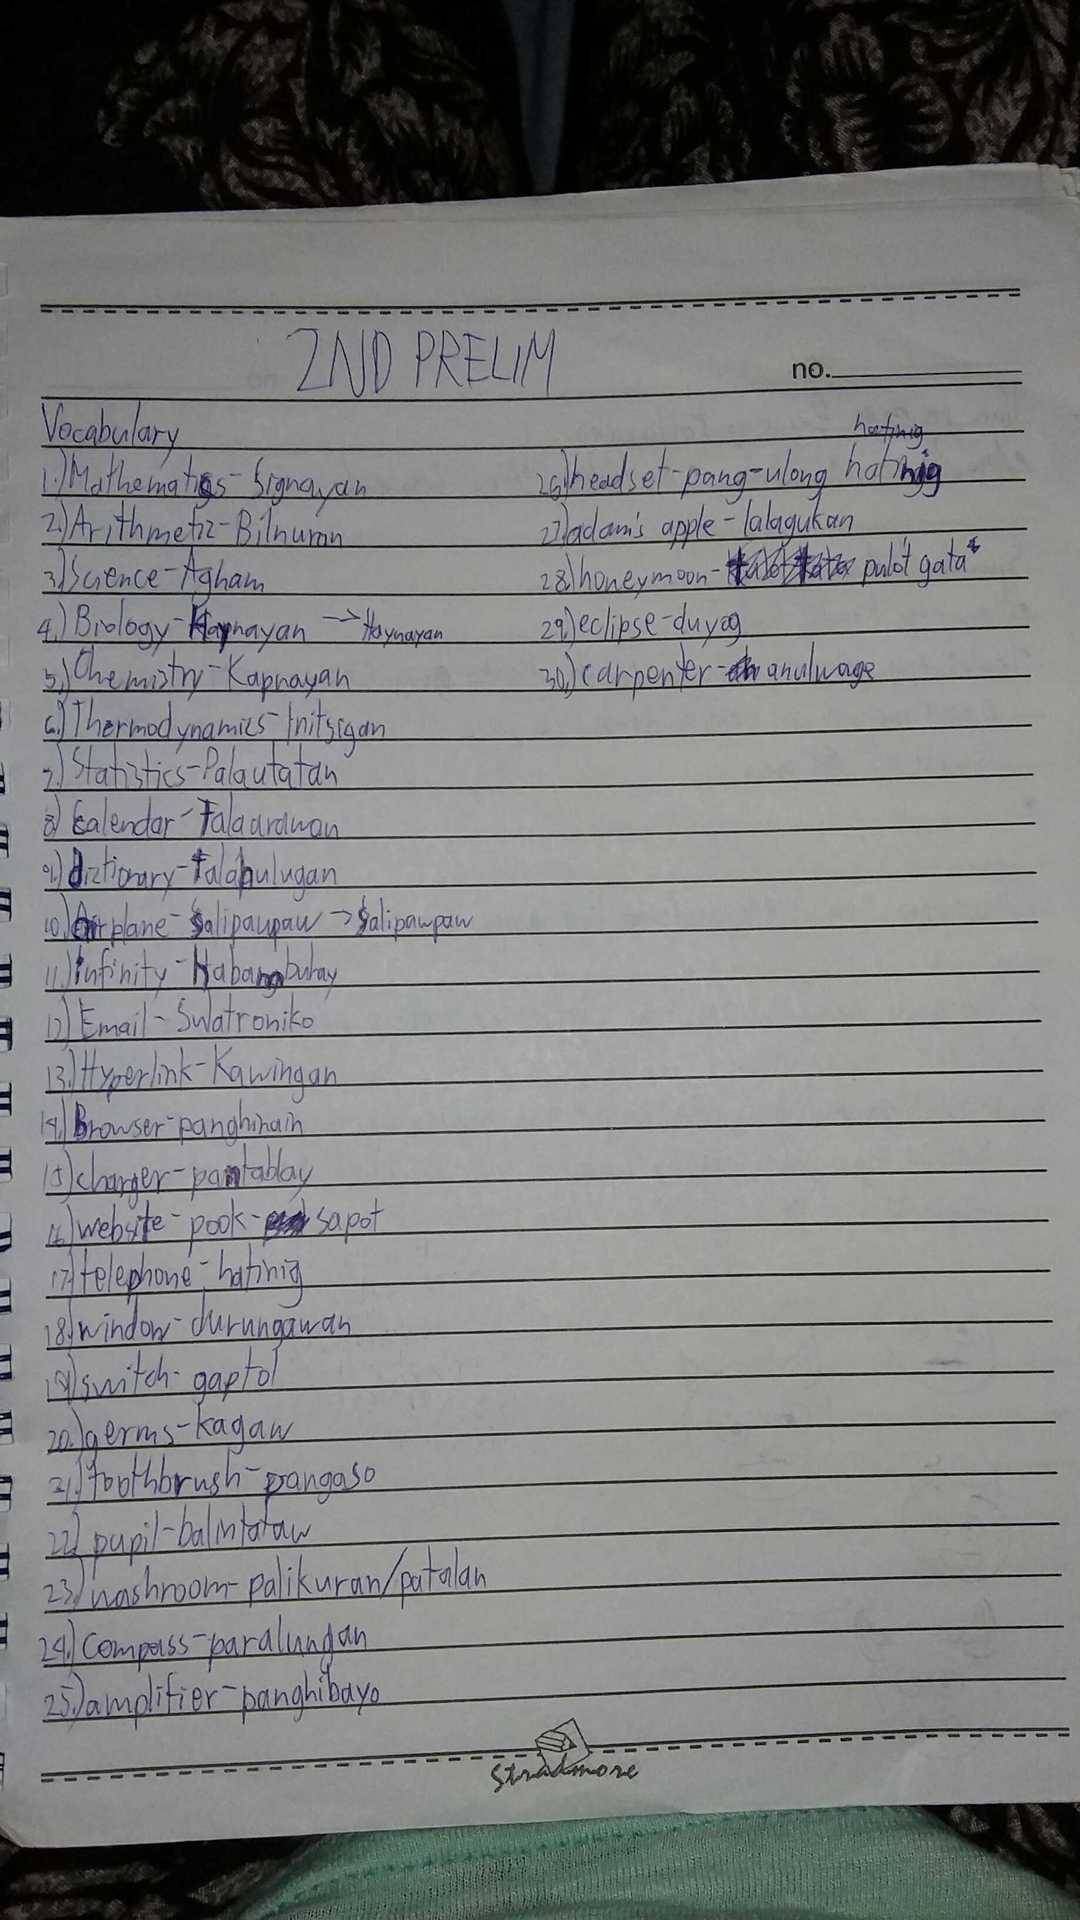 2ND PRELIM
no.
Vocabulary
1.) Mathematics - Signayan
2.) Arithmetic - Bilnuran
3.) Science - Agham
4.) Biology - Haynayan → Haynayan
5.) Chemistry - Kapnayan
6.) Thermodynamics - Initsigan
7.) Statistics - Palautatan
8.) Calendar - Talaarawan
9.) dictionary - talahulugan
10.) Airplane - Salipaupaw → Salipawpaw
11.) infinity - Habangbuhay
12.) Email - Sulatroniko
13.) Hyperlink - Kawingan
14.) Browser - panghinain
15.) charger - pantablay
16.) website - pook- sapot
17.) telephone - hatinig
18.) window - durungawan
19.) switch - gaptol
20.) germs - kagaw
21.) toothbrush - pangaso
22.) pupil - balintataw
23.) washroom - palikuran/patalan
24.) compass - paralungan
25.) amplifier - panghibayo
hatinig
26.) headset - pang-ulong hatinig
27.) adam's apple - lalagukan
28.) honeymoon - pulo't gata
29.) eclipse - duyog
30.) carpenter - anulwage
Stradmore